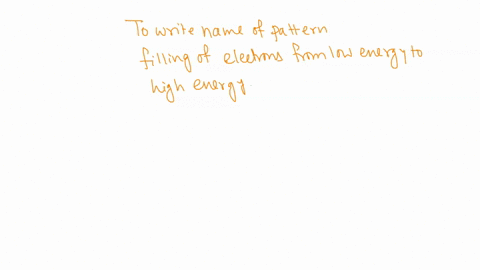 To write name of pattern
filling of electrons from low energy to
high energy.